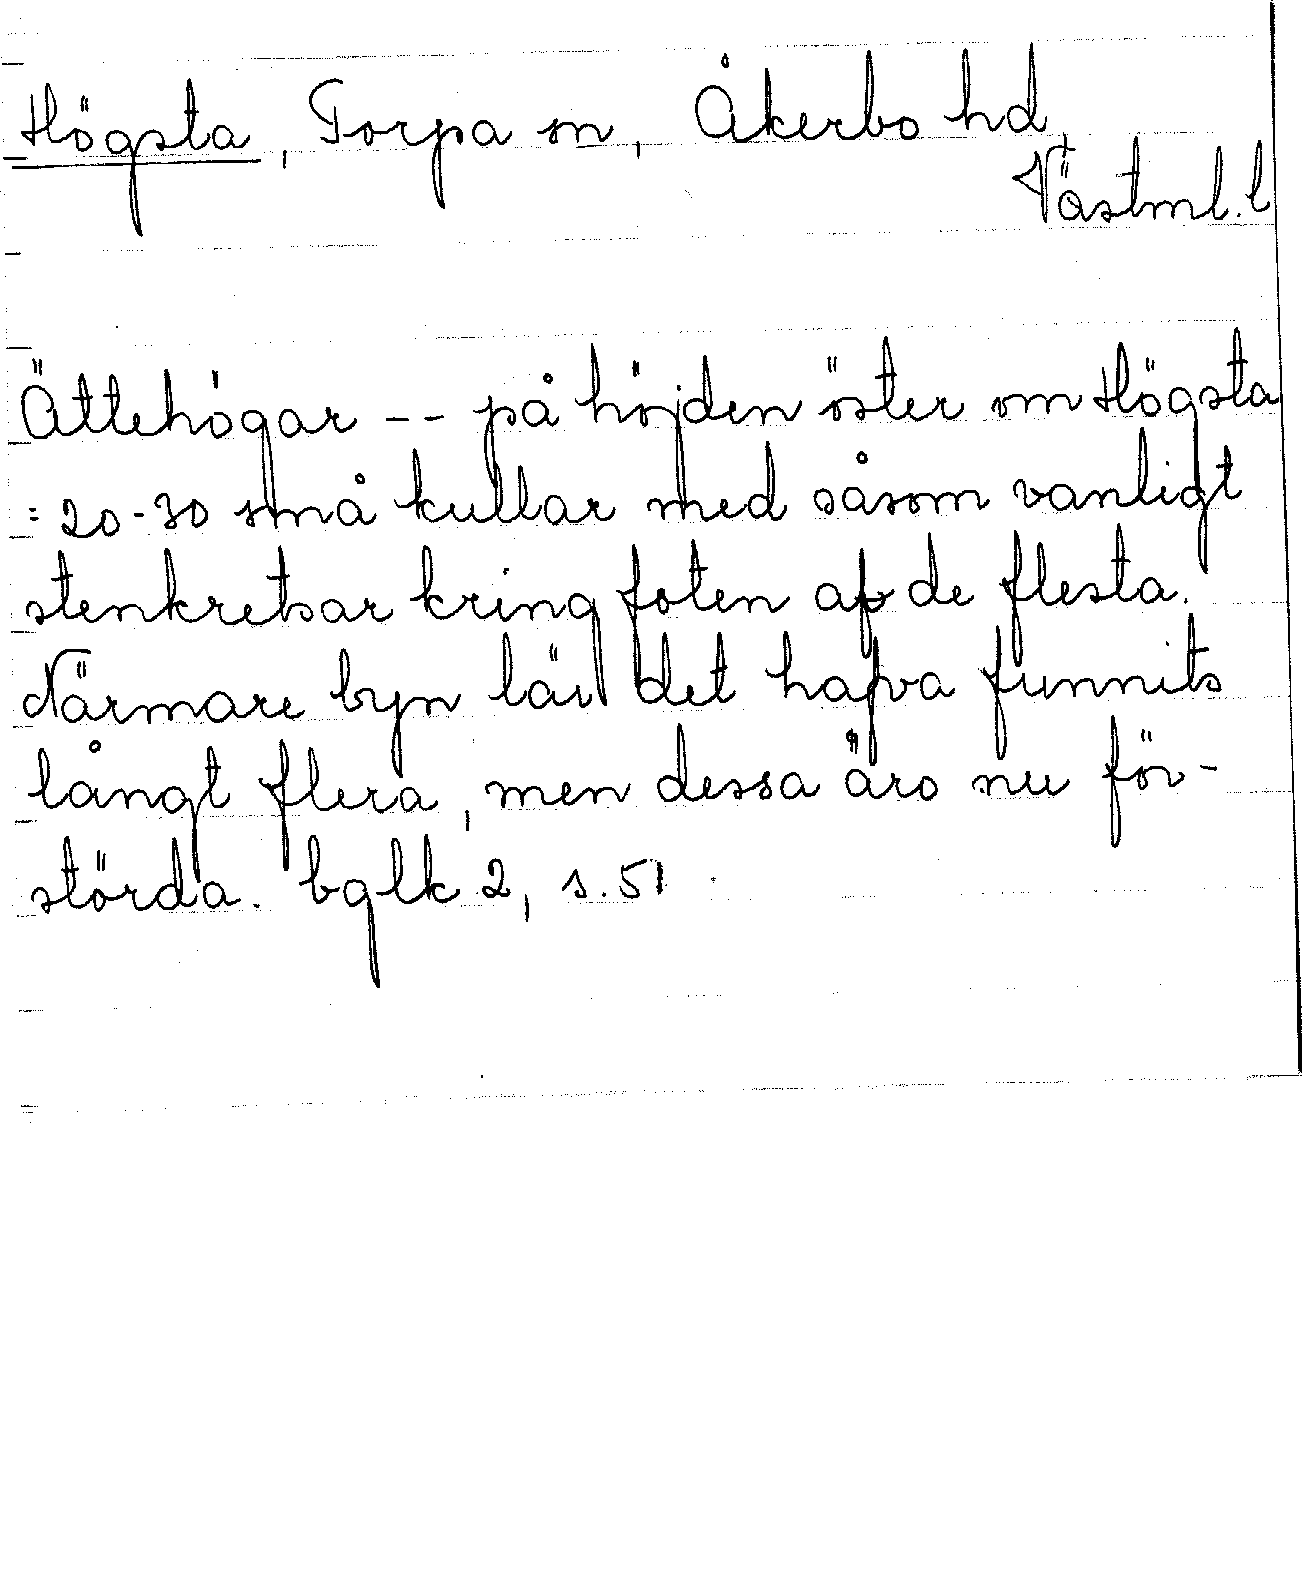 Högsta, Torpa sn, Åkerbo hd,
Västml. l
Ättehögar -- på höjden öster om Högsta
= 20-30 små kullar med såsom vanligt
stenkretsar kring foten af de flesta.
Närmare byn lär det hafva funnits
långt flera, men dessa äro nu för-
störda. bglk 2, s. 51